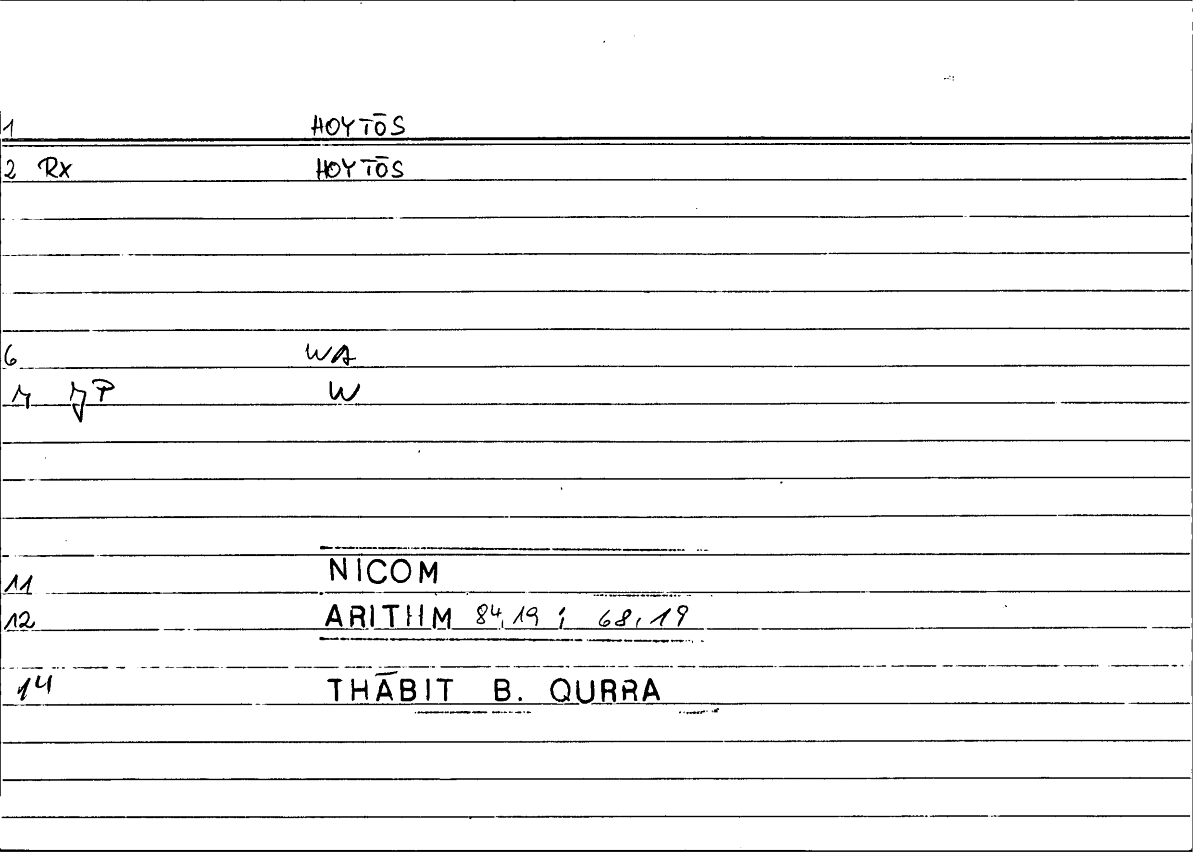 1 HOYTŌS
2 Rx HOYTŌS
6 WA
P W
11 NICOM
12 ARITHM 84,19 ; 68,19
14 THĀBIT B. QURRA